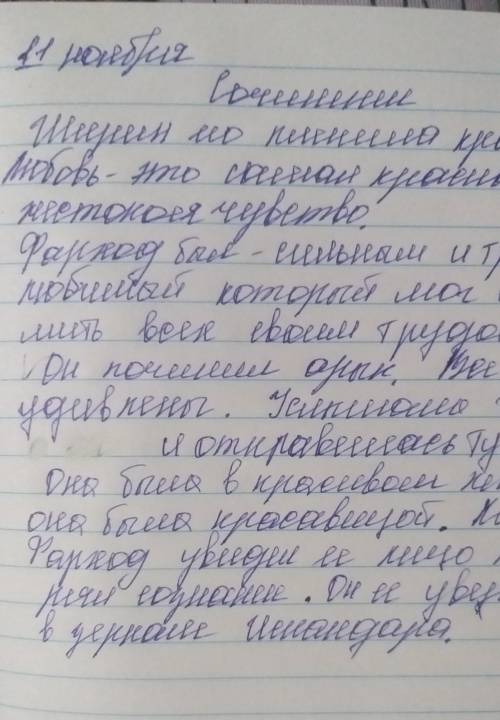 11 ноября
Сочинении
Ширин
Любовь - это самая краси
жестокая чувство.
Фарход был - сильным и тр
любимый который мог
мить всех своим трудо
Он починил арык. Все
удивлены. Услышала
и отправилась ту
Она была в красивом
она была красавицой.
Фарход увидел ее лицо
рял сознание. Он ее уве
в зеркале Искандара.